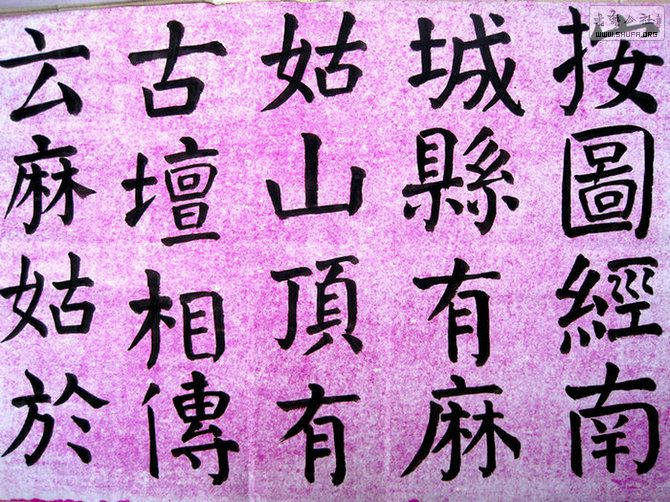 按圖經南
城縣有麻
姑山頂有
古壇相傳
云麻姑於
WWW.SHUFA.ORG